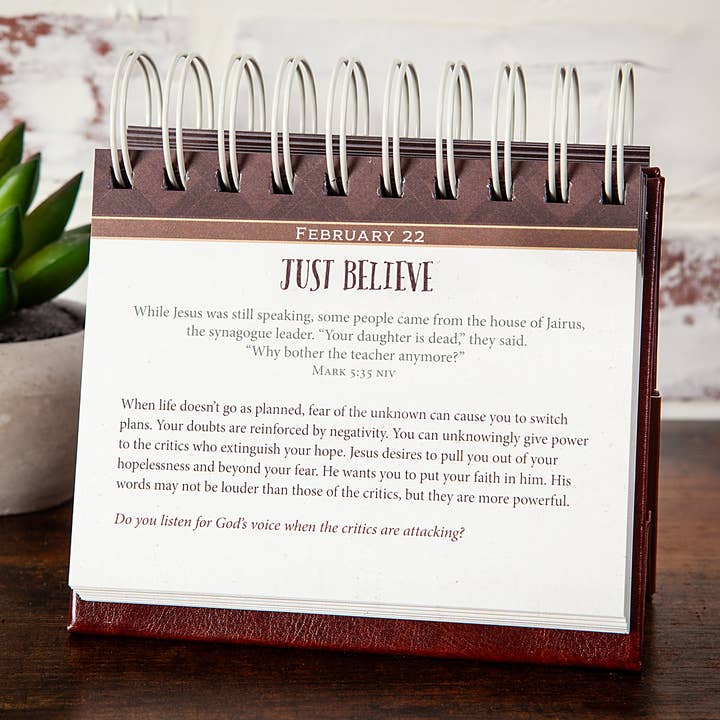 February 22
JUST BELIEVE
While Jesus was still speaking, some people came from the house of Jairus,
the synagogue leader. “Your daughter is dead,” they said.
“Why bother the teacher anymore?”
Mark 5:35 NIV
When life doesn’t go as planned, fear of the unknown can cause you to switch
plans. Your doubts are reinforced by negativity. You can unknowingly give power
to the critics who extinguish your hope. Jesus desires to pull you out of your
hopelessness and beyond your fear. He wants you to put your faith in him. His
words may not be louder than those of the critics, but they are more powerful.
Do you listen for God’s voice when the critics are attacking?